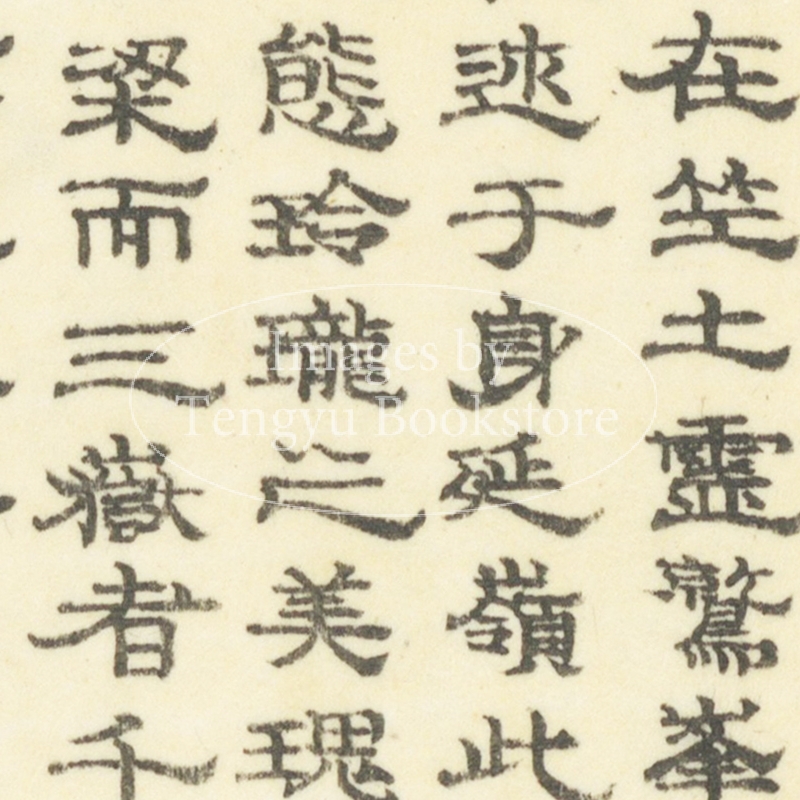 在竺土靈鷲峯
迹于身延嶺此
態玲瓏之美瑰
梁而三嶽者千
Images by
Tengyu Bookstore